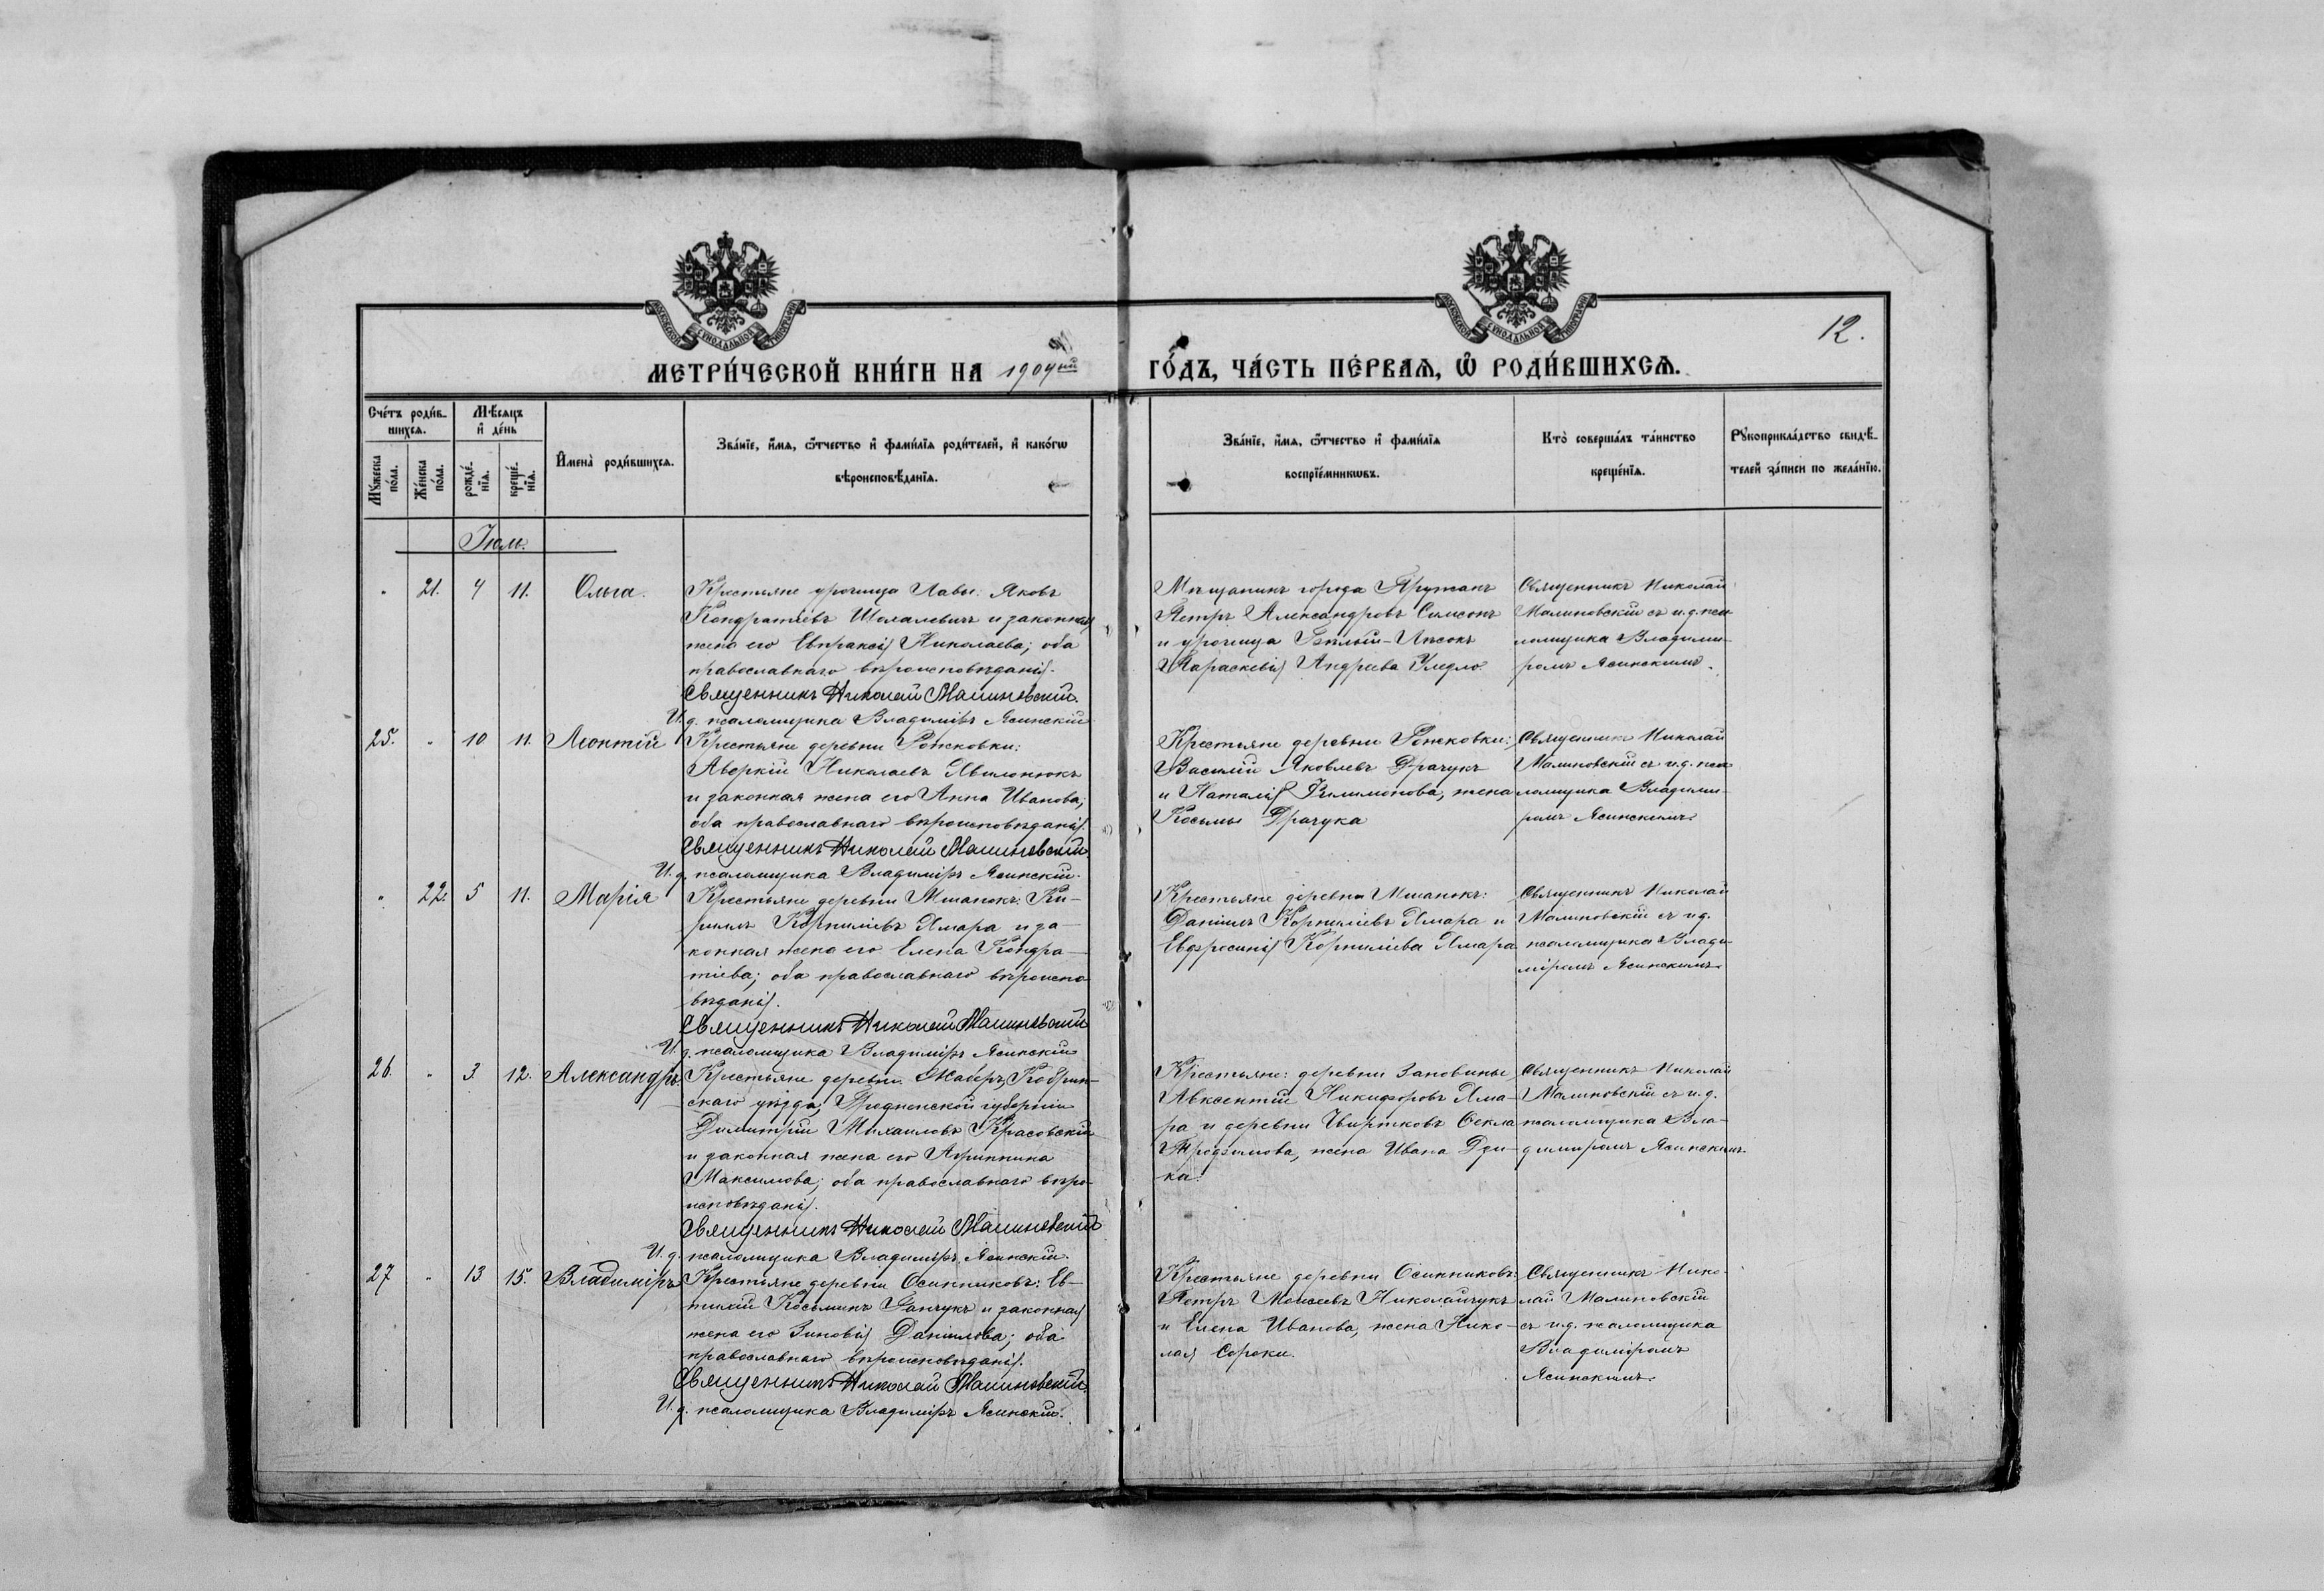 МЕТРИ́ЧЕСКОЙ КНИ́ГИ НА 1904ый ГО́ДЪ, ЧА́СТЬ ПЕ́РВАѦ, Ѡ҆ РОДИ́ВШИХСѦ.
12.
Сче́тъ роди́в-
шихсѧ.
Мѣ́сѧцъ
и҆ де́нь
Мꙋ́жеска
по́ла.
Же́нска
по́ла.
рожде́-
нїѧ.
креще́-
нїѧ.
И҆мена̀ роди́вшихсѧ.
Зва́нїе, и҆́мѧ, ѻ҆́тчество и҆ фами́лїѧ роди́телей, и҆ како́гѡ
вѣроисповѣ́данїѧ.
Зва́нїе, и҆́мѧ, ѻ҆́тчество и҆ фами́лїѧ
воспрїе́мникѡвъ.
Кто̀ соверша́лъ та́инство
креще́нїѧ.
Рꙋкоприкла́дство свидѣ́-
телей за́писи по жела́нїю.
Іюль.
" 21. 4 11. Ольга.
Крестьяне урочища Лавы: Яковъ
Кондратіевъ Шоламевичъ и законная
жена его Евпраксія Николаева; оба
православнаго вѣроисповѣданія.
Священникъ Николай Малиновскій.
И. д. псаломщика Владиміръ Ясинскій
Мѣщанинъ города Пружанъ
Петръ Александровъ Самсонъ
и урочища Бѣлый-Лѣсокъ
Параскевія Андреева
Священникъ Николай
Малиновскій съ и.д. пса-
ломщика Владими-
ромъ Ясинскимъ.
25. " 10 11. Леонтій
Крестьяне деревни Рожковки:
Аверкій Николаевъ Филонюкъ
и законная жена его Анна Иванова;
оба православнаго вѣроисповѣданія.
Священникъ Николай Малиновскій.
И. д. псаломщика Владиміръ Ясинскій.
Крестьяне деревни Рожковки:
Василій Яковлевъ Драчукъ
и Наталія Филимонова, жена
Косьмы Драчука
Священникъ Николай
Малиновскій съ и.д. пса-
ломщика Владими-
ромъ Ясинскимъ
" 22. 5 11. Марія
Крестьяне деревни Мшанокъ: Ки-
риллъ Корниліевъ Ямара и за-
конная жена его Елена Кондра-
тіева; оба православнаго вѣроиспо-
вѣданія.
Священникъ Николай Малиновскій
И. д. псаломщика Владиміръ Ясинскій
Крестьяне деревни Мшанокъ:
Даніилъ Корниліевъ Ямара и
Евфросинія Корниліева Ямара
Священникъ Николай
Малиновскій съ и.д.
псаломщика Влади-
міромъ Ясинскимъ
26. " 3 12. Александръ
Крестьяне деревни Хаберъ, Кобрин-
скаго уѣзда, Гродненской губерніи
Димитрій Михаиловъ Красовскій
и законная жена его Агриппина
Максимова; оба православнаго вѣро-
исповѣданія.
Священникъ Николай Малиновскій
И. д. псаломщика Владиміръ Ясинскій.
Крестьяне: деревни Зановины
Авксентій Никифоровъ Яма-
ра и деревни Чвиртковъ Ѳекла
Трофимова, жена Ивана
Священникъ Николай
Малиновскій съ и.д.
псаломщика Вла-
димиромъ Ясинскимъ.
27 " 13 15. Владиміръ
Крестьяне деревни Осинниковъ: Ев-
тихій Косьминъ Ганчукъ и законная
жена его Зиновія Даніилова; оба
православнаго вѣроисповѣданія.
Священникъ Николай Малиновскій.
И. д. псаломщика Владиміръ Ясинскій.
Крестьяне деревни Осинниковъ:
Петръ Моисеевъ Николайчукъ
и Елена Иванова, жена Нико-
лая Сороки.
Священникъ Нико-
лай Малиновскій
съ и.д. псаломщика
Владиміромъ
Ясинскимъ.